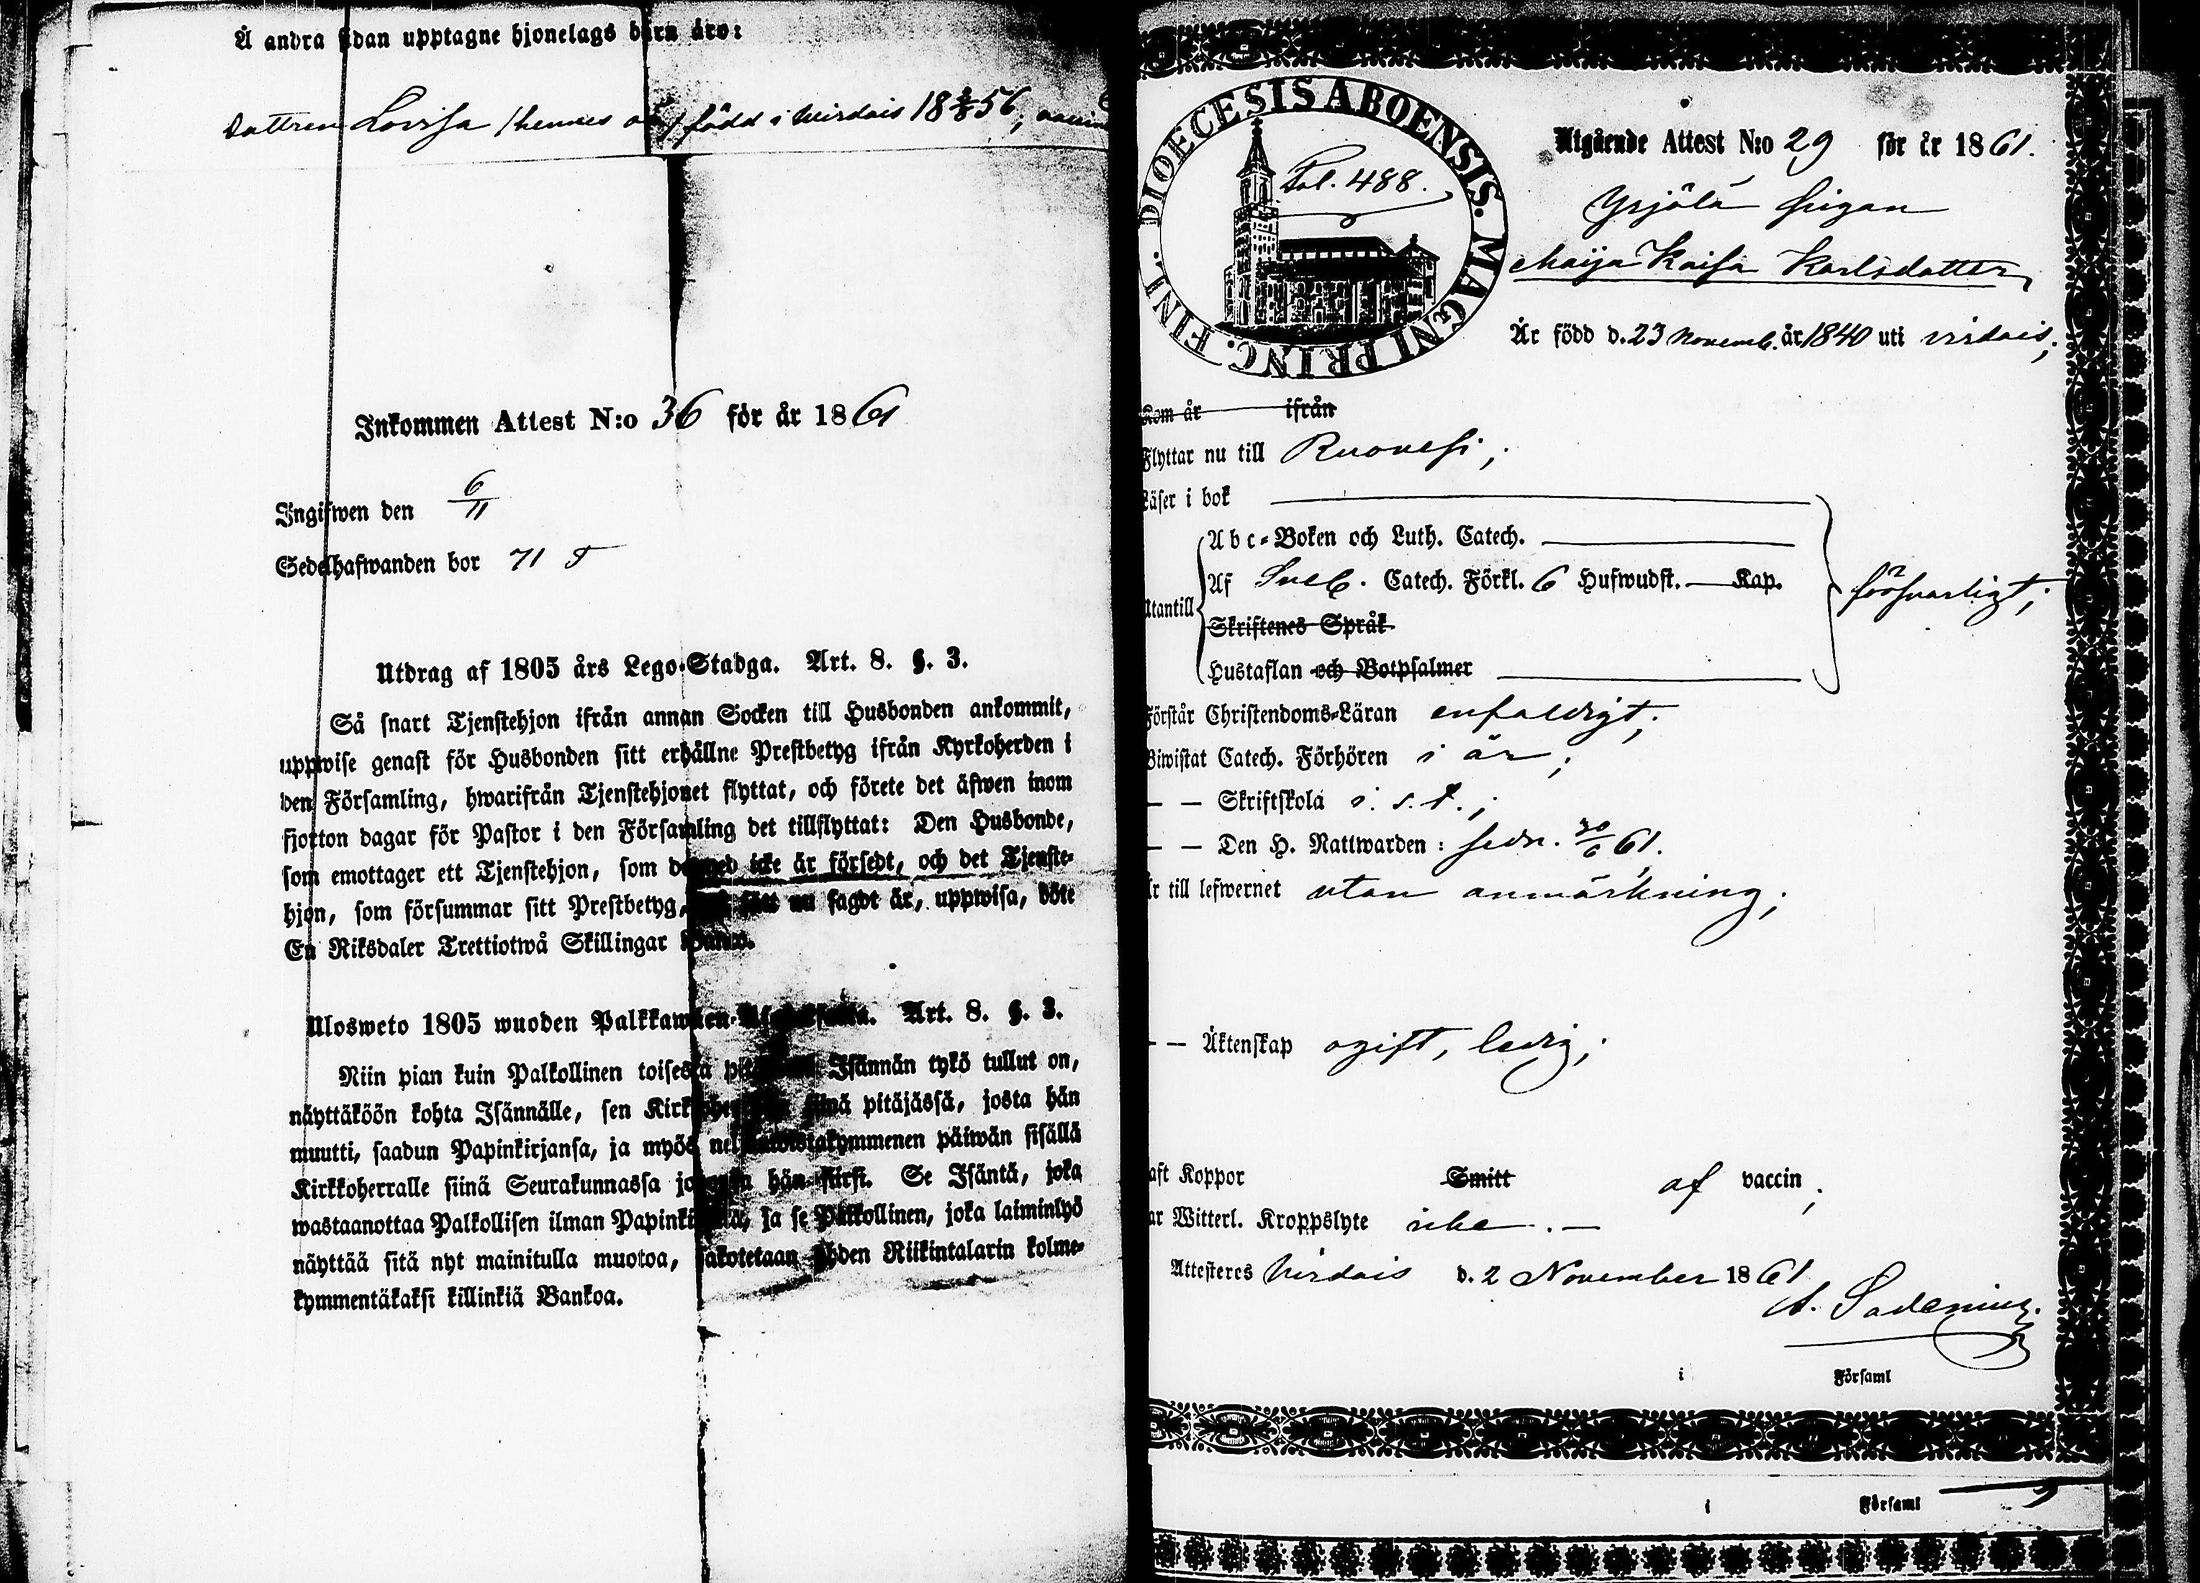 Å andra sidan upptagne hjonelags barn äro:
Dottren Lovisa /hennes oä/ född i Wirdois 18 2/8 56, vaccin
Inkommen Attest N:o 36 för år 1861
Ingifwen den 6/11
Sedelhafwanden bor 71 T
Utdrag af 1805 års Lego-Stadga. Art. 8. §. 3.
Så snart Tjenstehjon ifrån annan Socken till Husbonden ankommit,
uppwise genast för Husbonden sitt erhållne Prestbetyg ifrån Kyrkoherden i
den Församling, hwarifrån Tjenstehjonet flyttat, och förete det äfwen inom
fjorton dagar för Pastor i den Församling det tillflyttat: Den Husbonde,
som emottager ett Tjenstehjon, som dermed icke är försedt, och det Tjenste-
hjon, som försummar sitt Prestbetyg, sätt nu sagdt är, uppwisa, böte
En Riksdaler Trettiotwå Skillingar Banco.
Ulosweto 1805 wuoden Palkkawäen- Art. 8. §. 3.
Niin pian kuin Palkollinen toisesta Isännän tykö tullut on,
näyttäköön kohta Isännälle, sen Kirkkoherralta siinä pitäjässä, josta hän
muutti, saadun Papinkirjansa, ja myös neljäntoistakymmenen päiwän sisällä
Kirkkoherralle siinä Seurakunnassa johonka hän siirsi. Se Isäntä, joka
wastaanottaa Palkollisen ilman Papinkirjata, ja se Palkollinen, joka laiminlyö
näyttää sitä nyt mainitulla muotoa, sakotetaan yhden Riikintalarin kolme-
kymmentäkaksi killinkiä Bankoa.
DIOECESIS ABOENSIS. MAGNI PRINC. FINL.
Fol. 488.
Utgående Attest N:o 29 för år 1861.
Yrjölä pigan
Maija Kaisa Karlsdotter
Är född d. 23 Novemb. år 1840 uti Virdois;
Kom år ifrån
Flyttar nu till Ruovesi;
Läser i bok
Abc-Boken och Luth. Catech.
Utantill Af Sveb. Catech. Förkl. 6 Hufwudst. Kap. försvarligt;
Skriftenes Språk
Hustaflan och Botpsalmer
Förstår Christendoms-Läran enfaldigt;
Biwistat Catech. Förhören i år;
— — Skriftskola i. s. t.;
— — Den H. Nattwarden: sedn. 30/6 61.
Är till lefwernet utan anmärkning;
— — Äktenskap ogift, ledig;
aft Koppor Smitt af vaccin;
ar Witterl. Kroppslyte icke. —
Attesteres Virdois d. 2 November 1861
A. Sadenius.
i Församl
i Församl